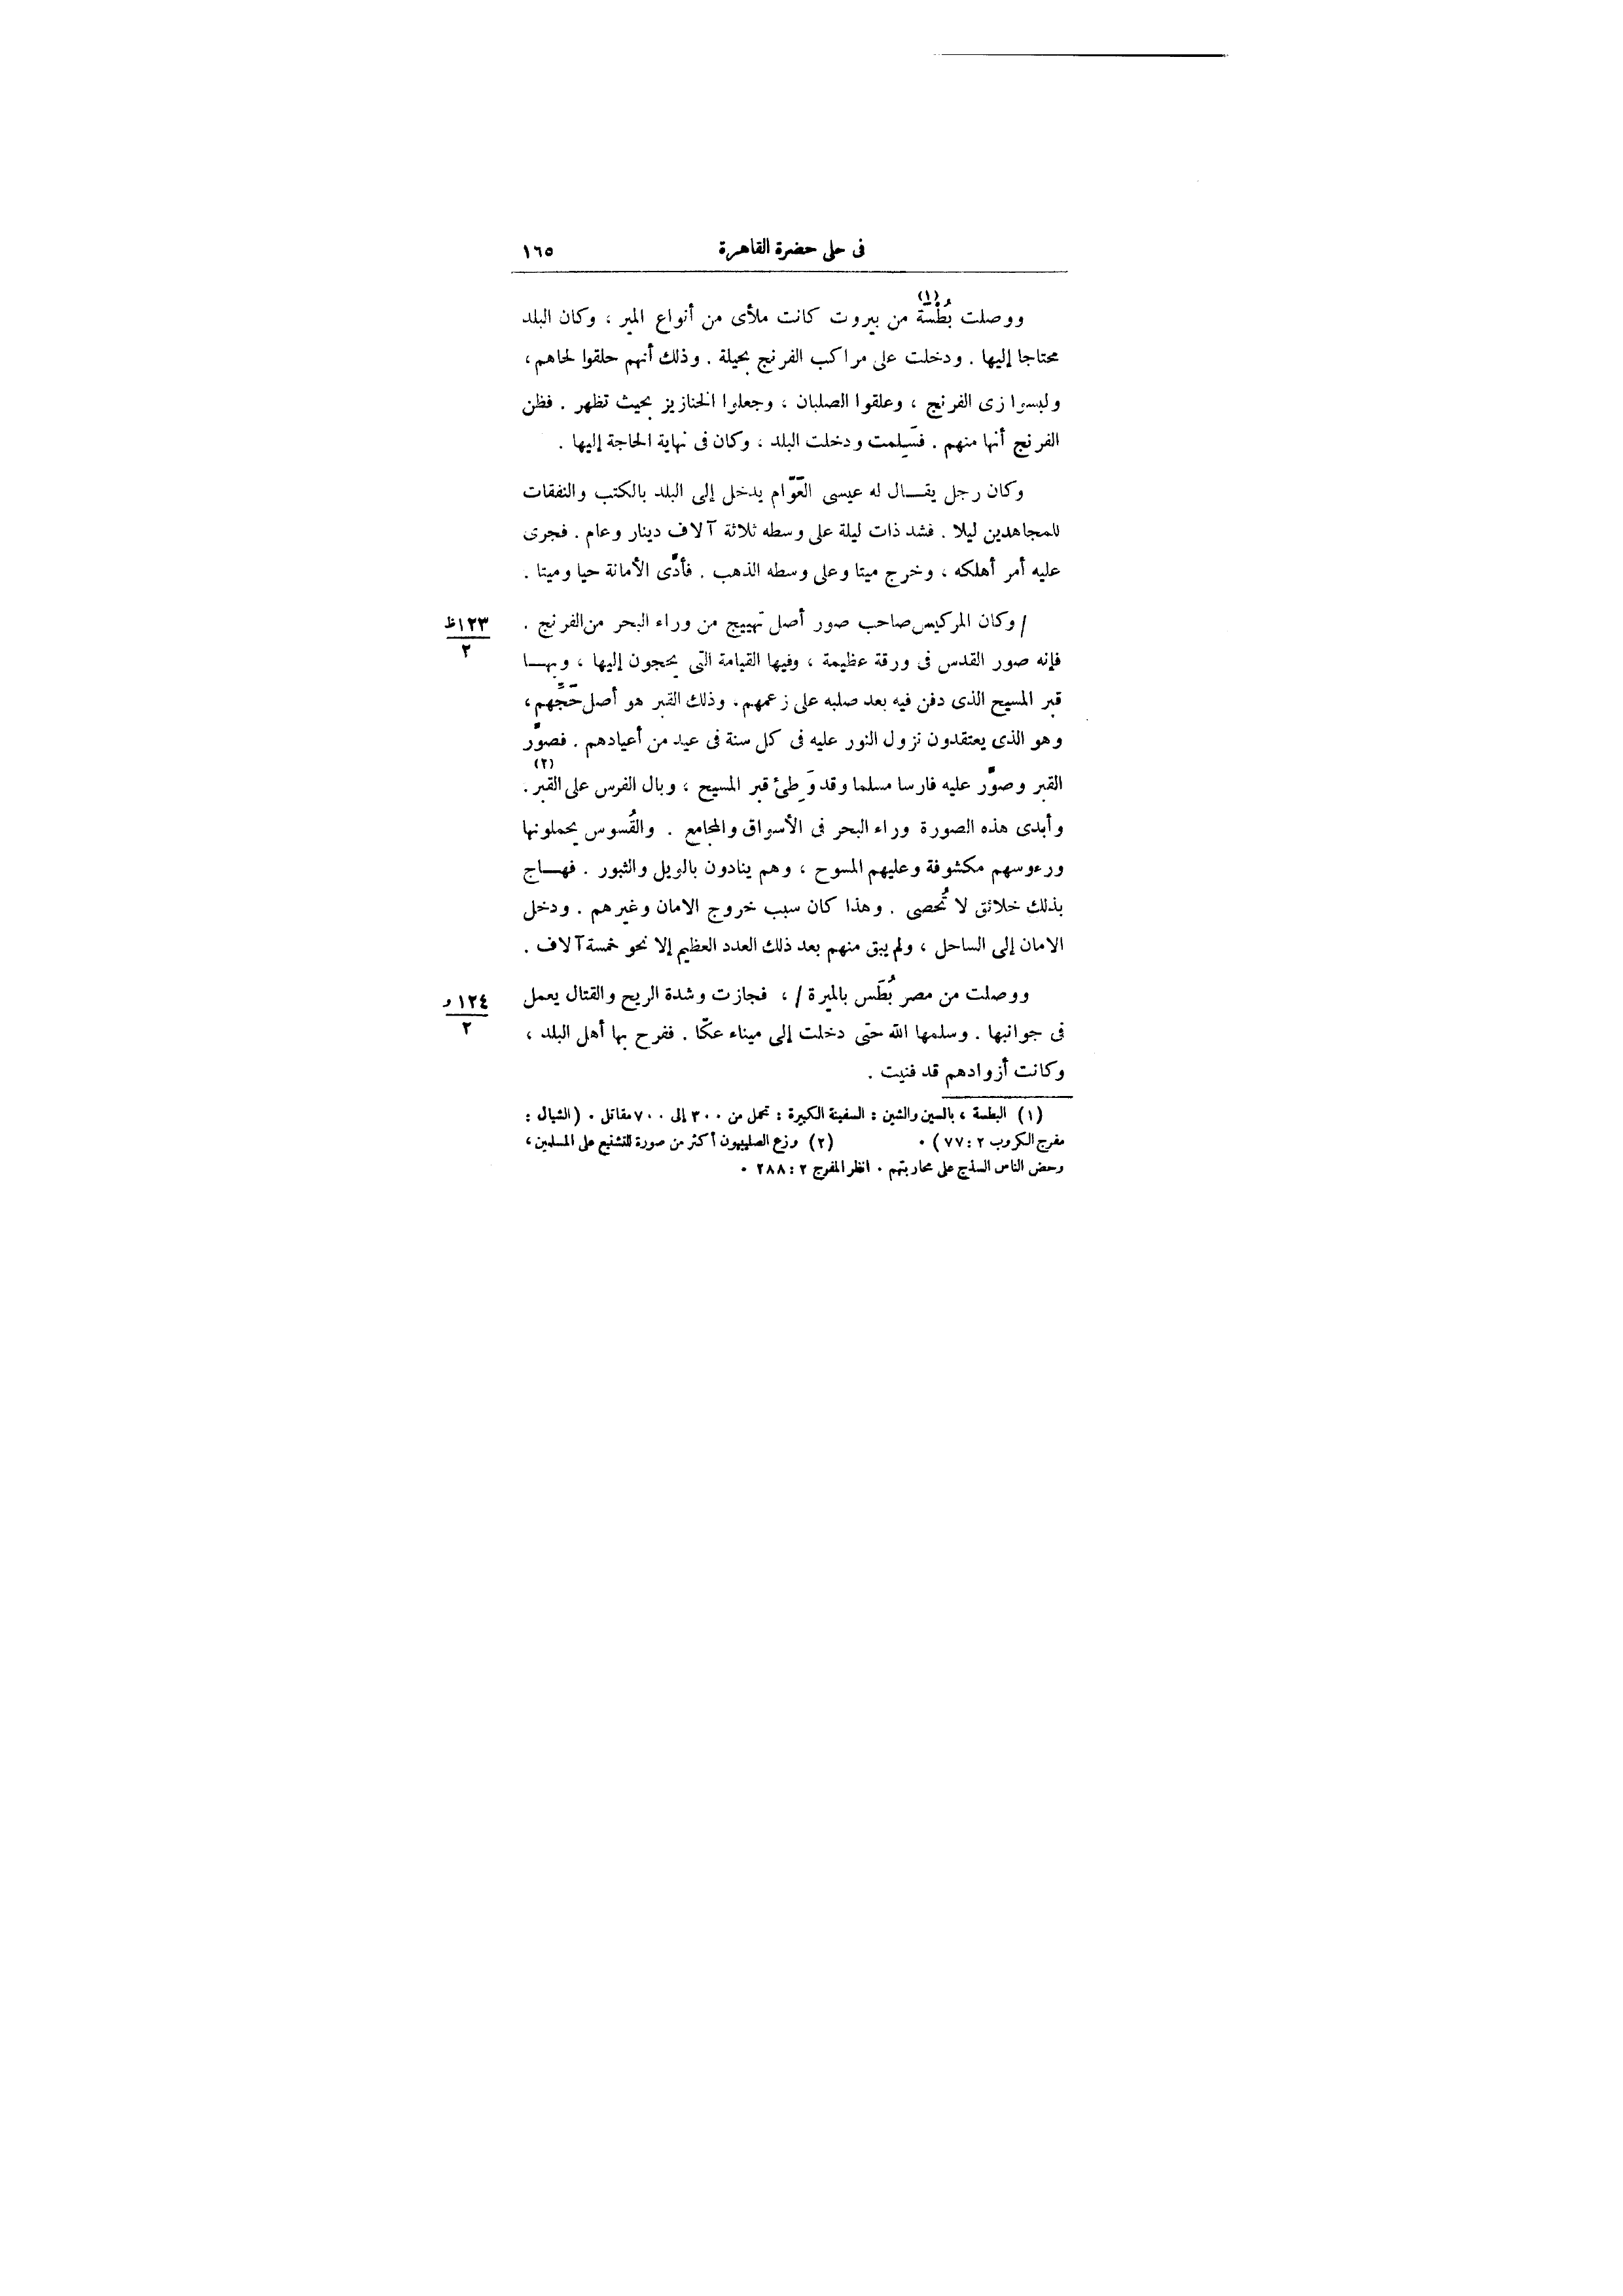 فى حلى حضرة القاهرة ١٦٥
ووصلت بُطْسَة (١) من بيروت كانت ملأى من أنواع المير ، وكان البلد
محتاجا إليها . ودخلت على مراكب الفرنج بحيلة . وذلك أنهم حلقوا لحاهم ،
ولبسوا زى الفرنج ، وعلقوا الصلبان ، وجعلوا الخنازيز بحيث تظهر . فظن
الفرنج أنها منهم . فسَلِمت ودخلت البلد ، وكان فى نهاية الحاجة إليها .
وكان رجل يقــال له عيسى العَوّام يدخل إلى البلد بالكتب والنفقات
للمجاهدين ليلا . فشد ذات ليلة على وسطه ثلاثة آلاف دينار وعام . فجرى
عليه أمر أهلكه ، وخرج ميتا وعلى وسطه الذهب . فأدّى الأمانة حيا وميتا .
/ وكان المركيس صاحب صور أصل تهييج من وراء البحر من الفرنج .
١٢٣ظ
٢
فإنه صور القدس فى ورقة عظيمة ، وفيها القيامة التى يحجون إليها ، وبهــا
قبر المسيح الذى دفن فيه بعد صلبه على زعمهم . وذلك القبر هو أصل حَجِّهم ،
وهو الذى يعتقدون نزول النور عليه فى كل سنة فى عيد من أعيادهم . فصوّر
القبر وصوّر عليه فارسا مسلما وقد وَطِئ قبر المسيح ، وبال الفرس على القبر (٢) .
وأبدى هذه الصورة وراء البحر فى الأسواق والمجامع . والقُسوس يحملونها
ورءوسهم مكشوفة وعليهم المسوح ، وهم ينادون بالويل والثبور . فهــاج
بذلك خلائق لا تُحصى . وهذا كان سبب خروج الامان وغيرهم . ودخل
الامان إلى الساحل ، ولم يبق منهم بعد ذلك العدد العظيم إلا نحو خمسة آلاف .
ووصلت من مصر بُطَس بالميرة / ، فجازت وشدة الريح والقتال يعمل
١٢٤ و
٢
فى جوانبها . وسلمها الله حتى دخلت إلى ميناء عكّا . ففرح بها أهل البلد ،
وكانت أزوادهم قد فنيت .
(١) البطسة ، بالسين والشين : السفينة الكبيرة : تحمل من ٣٠٠ إلى ٧٠٠ مقاتل . (الشيال :
مفرج الكروب ٢ : ٧٧) . (٢) وزع الصليبيون أكثر من صورة للتشنيع على المسلمين ،
وحض الناس السذج على محاربتهم . انظر المفرج ٢ : ٢٨٨ .